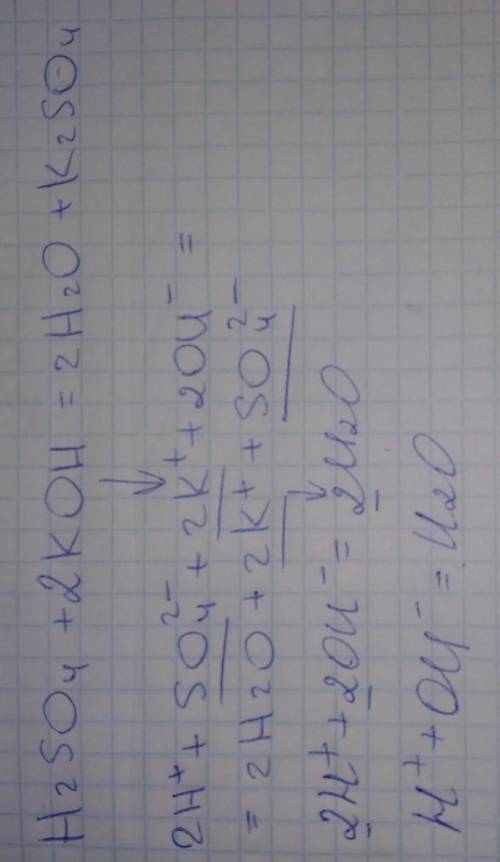 H₂SO₄ + 2KOH = 2H₂O + K₂SO₄
2H⁺ + SO₄²⁻ + 2K⁺ + 2OH⁻ =
= 2H₂O + 2K⁺ + SO₄²⁻
2H⁺ + 2OH⁻ = 2H₂O
H⁺ + OH⁻ = H₂O